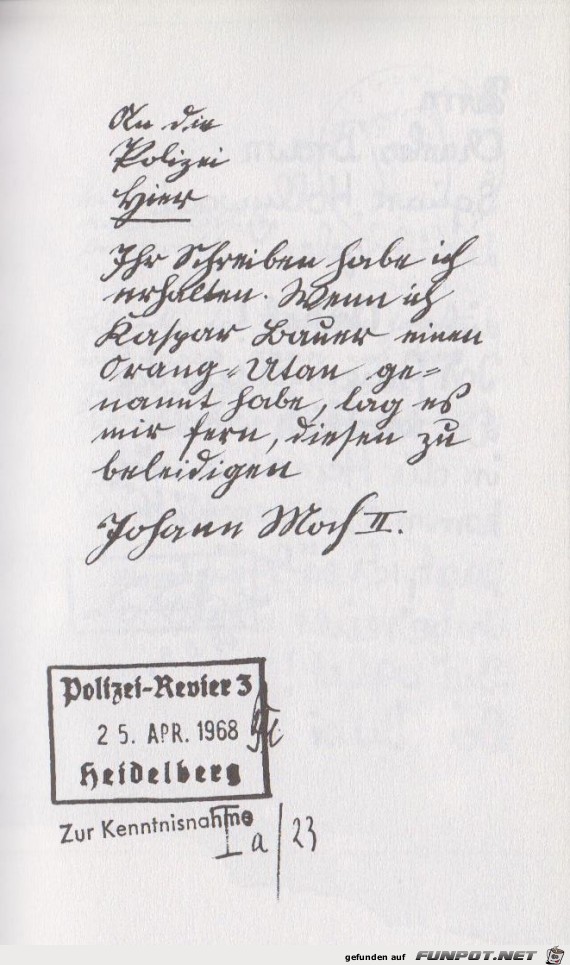 An die
Polizei
Hier
Ihr Schreiben habe ich
erhalten. Wenn ich
Kaspar Bauer einen
Orang-Utan ge=
nannt habe, lag es
mir fern, diesen zu
beleidigen
Johann Moch II.
Polizei-Revier 3
25. APR. 1968
Heidelberg
Zur Kenntnisnahme
I a/23
gefunden auf FUNPOT.NET